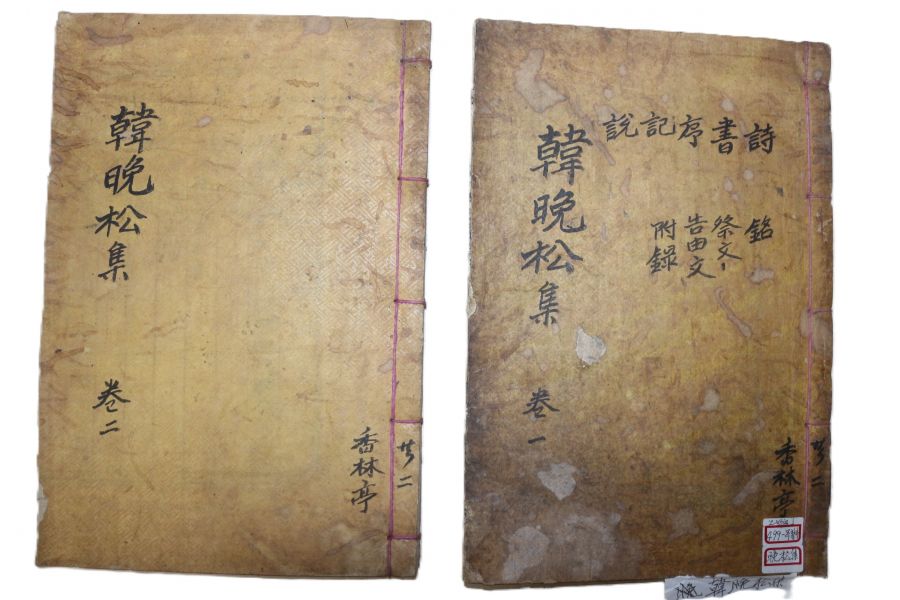 共二
香林亭
詩 銘
書 祭文
序 告由文
記 附錄
說
韓晩松集 卷一
晩松集
韓晩松集
共二
香林亭
韓晩松集 卷二